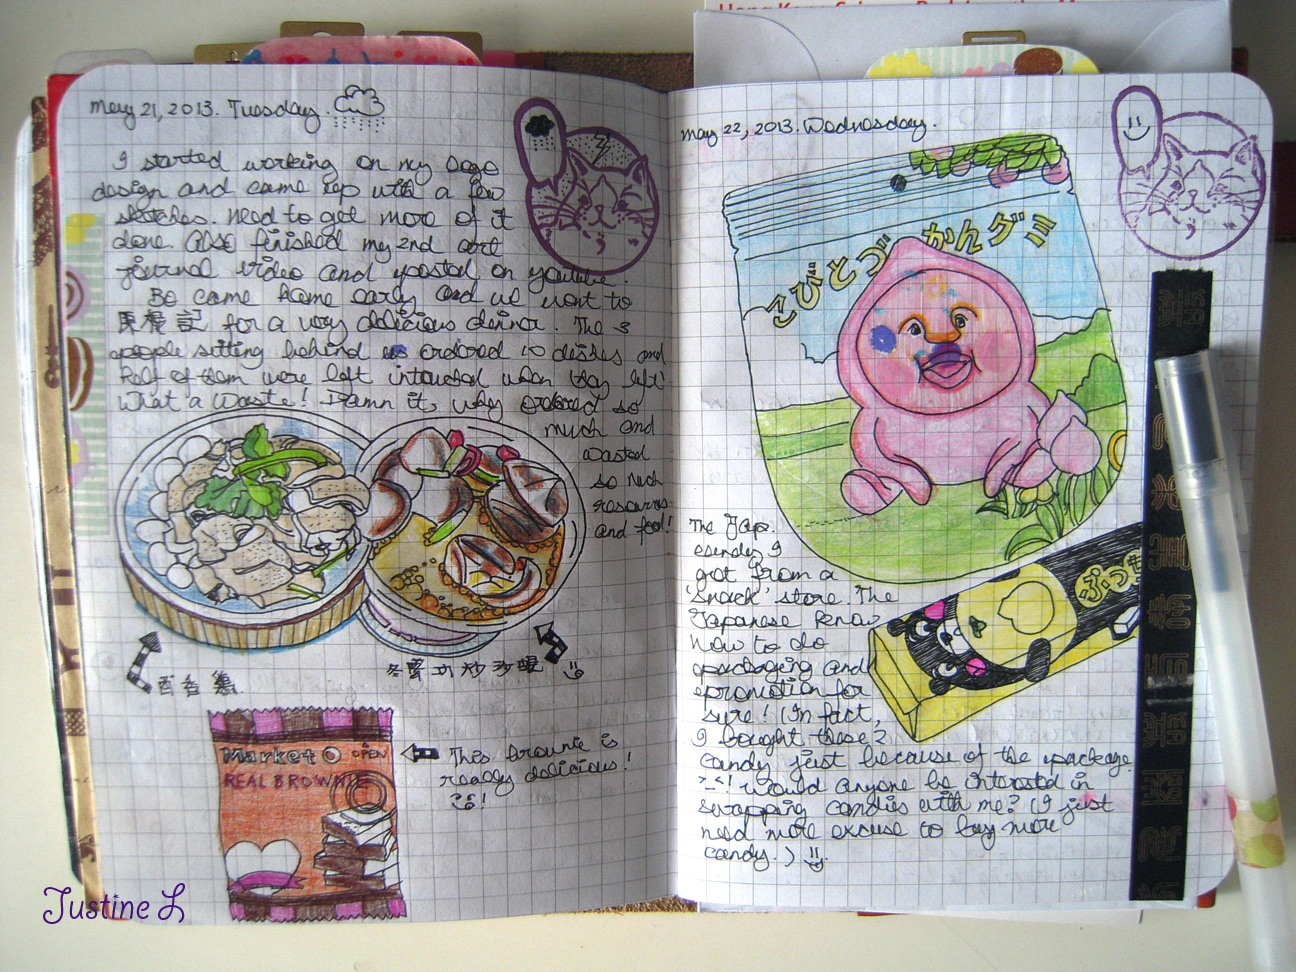 May 21, 2013. Tuesday.
I started working on my logo
design and came up with a few
sketches. Need to get more of it
done. Also finished my 2nd art
journal video and posted on youtube.
Bo came home early and we went to
記 for a very delicious dinner. The 3
people sitting behind us ordered 10 dishes and
half of them were left intouched when they left!
What a waste! Damn it, why ordered so
much and
wasted
so much
resources
and food!
香 鷄
冬 炒
Market O OPEN
REAL BROWNIE
This brownie is
really delicious!
May 22, 2013. Wednesday.
こびとづかんグミ
The Jap.
candy I
got from a
'snack' store. The
Japanese know
how to do
packaging and
promotion for
sure! (In fact,
I bought these 2
candy just because of the package
Would anyone be interested in
swapping candies with me? (I just
need more excuse to buy more
candy.)
ぷっち
Justine L